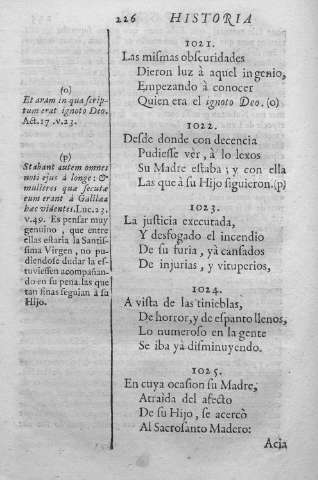 226 HISTORIA
1021.
Las mismas obscuridades
Dieron luz à aquel ingenio,
Empezando à conocer
Quien era el ignoto Deo. (o)
(o)
Et aram in qua scrip-
tum erat ignoto Deo.
Act. 17. v. 23.
1022.
Desde donde con decencia
Pudiesse vèr, à lo lexos
Su Madre estaba; y con ella
Las que à su Hijo siguieron. (p)
(p)
Stabant autem omnes
noti ejus à longe: &
mulieres quæ secutæ
eum erant à Galilæa
hæc videntes. Luc. 23.
v. 49. Es pensar muy
genuino, que entre
ellas estaria la Santis-
sima Virgen, no pu-
diendose dudar la es-
tuviessen acompañan-
do en su pena las que
tan finas seguian à su
Hijo.
1023.
La justicia executada,
Y desfogado el incendio
De su furia, yà cansados
De injurias, y vituperios,
1024.
A vista de las tinieblas,
De horror, y de espanto llenos,
Lo numeroso en la gente
Se iba yà disminuyendo.
1025.
En cuya ocasion su Madre,
Atraida del afecto
De su Hijo, se acercò
Al Sacrosanto Madero:
Acia